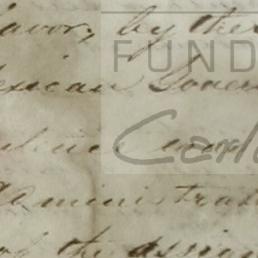 favor, by the
FUND
Mexican Gover
Carlo
dence
Administrat
of the assign